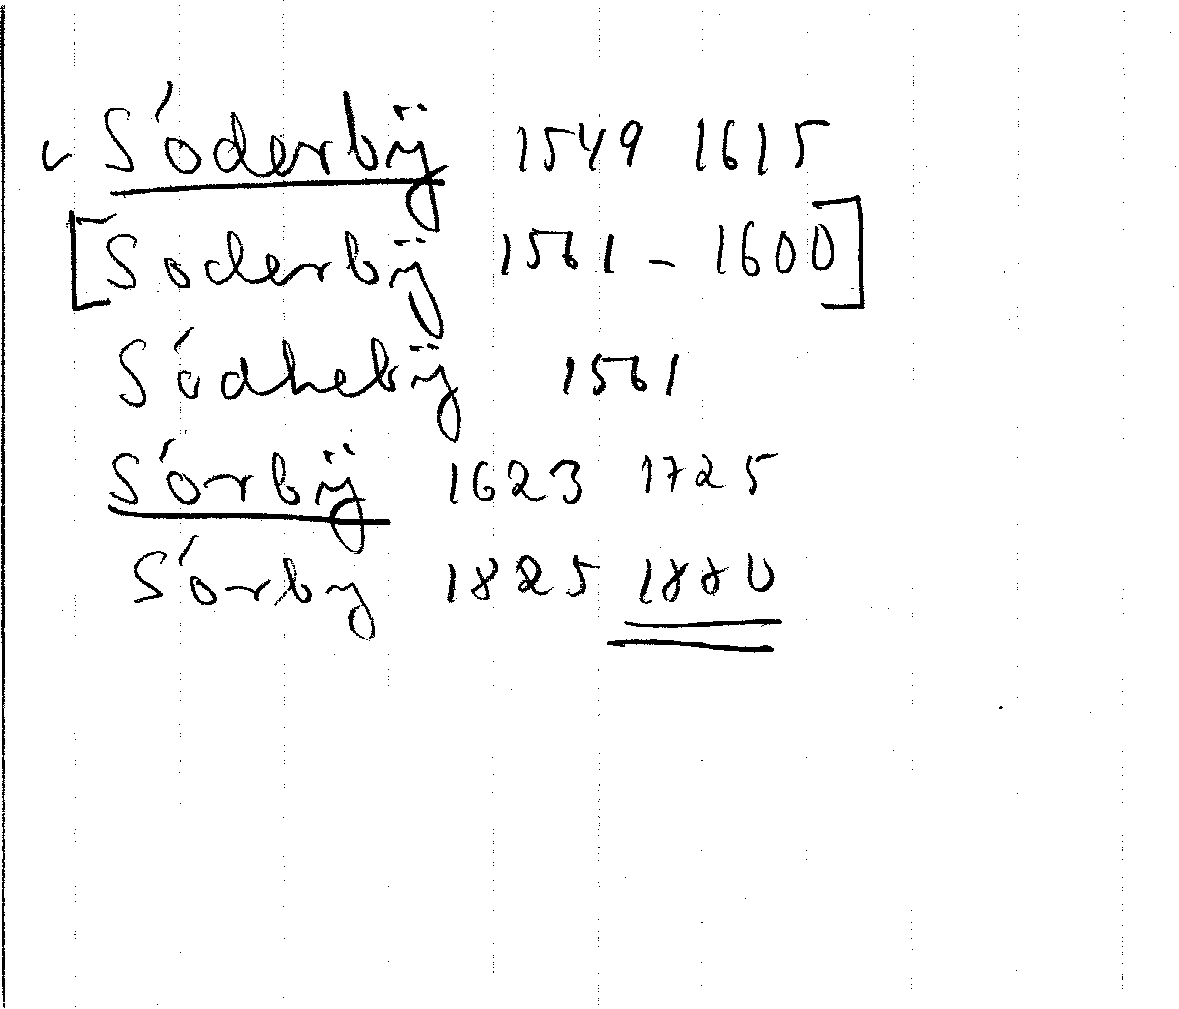 ✓ Söderbÿ 1549 1615
[Soderbÿ 1561 - 1600]
Södhebÿ 1561
Sörbÿ 1623 1725
Sörby 1825 1880